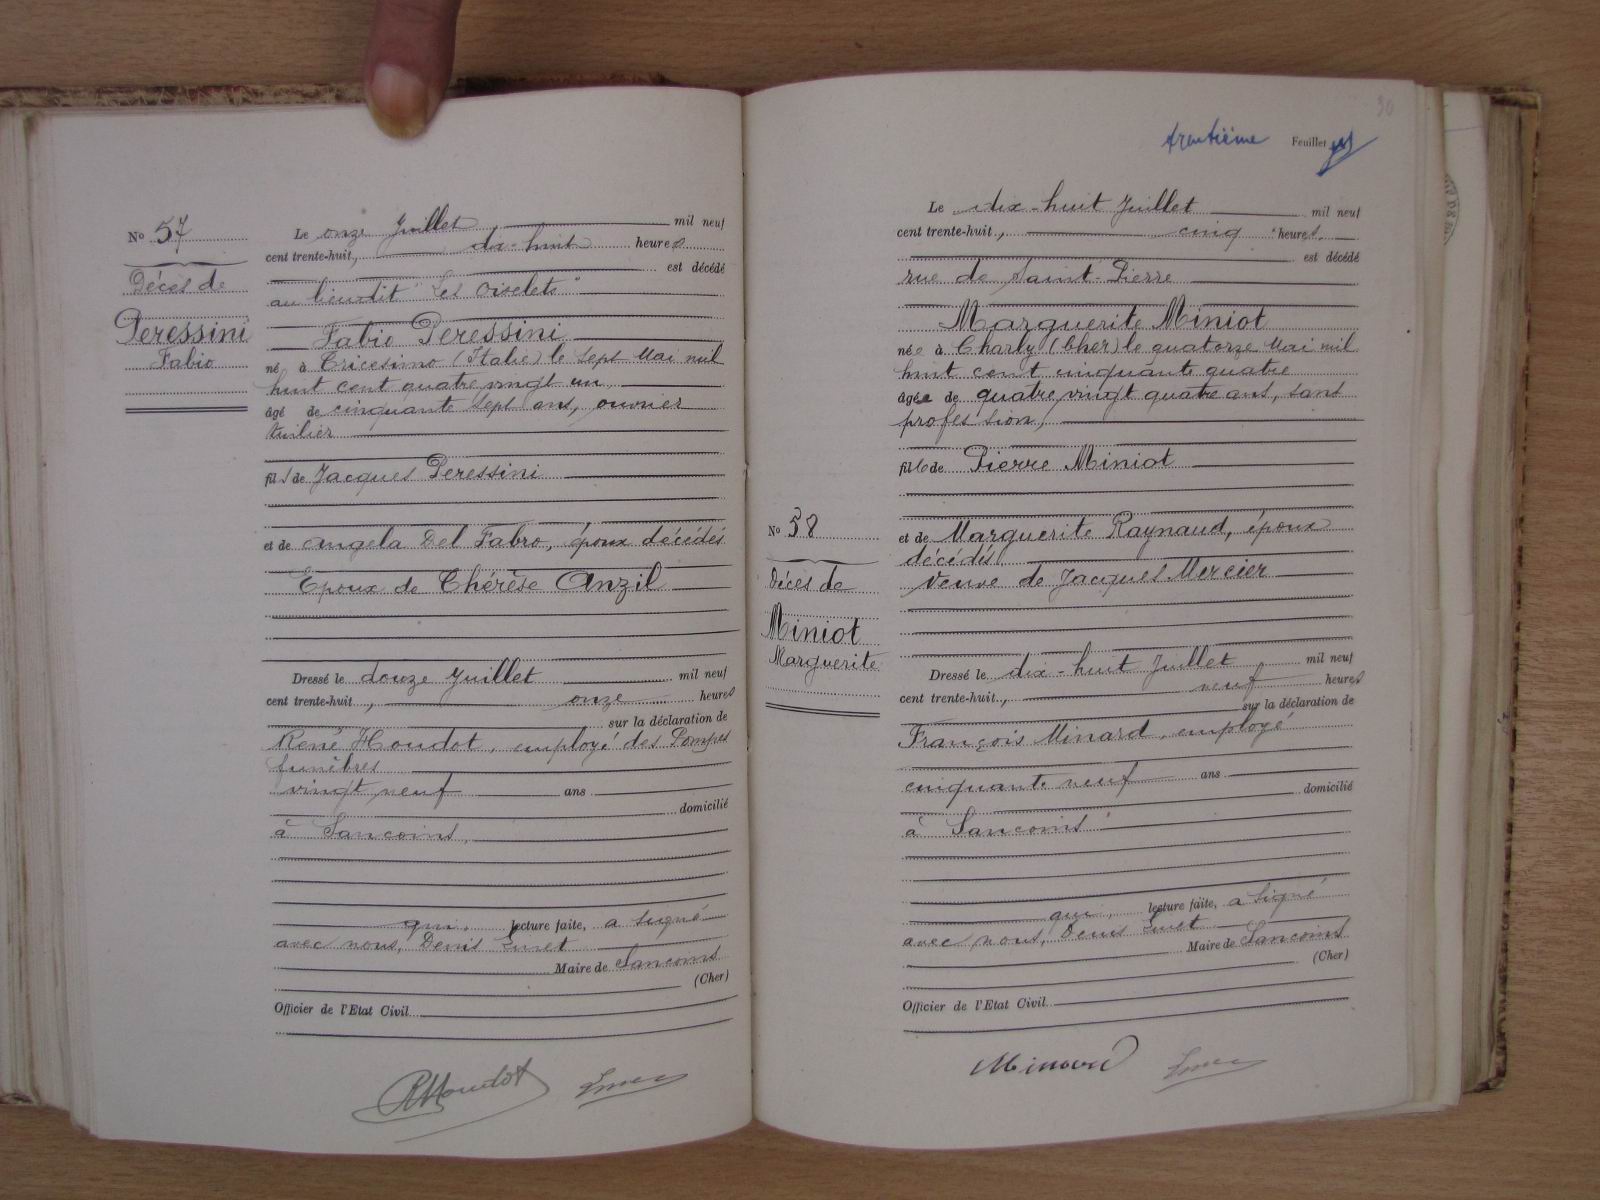 No 57
Décès de
Peressini
Fabio
Le onze Juillet mil neuf
cent trente-huit, dix-huit heures
est décédé
au lieudit "Les Oiselets"
Fabio Peressini
né à Tricesimo (Italie) le sept Mai mil
huit cent quatre vingt un,
âgé de cinquante sept ans, ouvrier
tuilier
fils de Jacques Peressini
et de Angela Del Fabro, époux décédés
Epoux de Thérèse Anzil
Dressé le douze Juillet mil neuf
cent trente-huit, onze heures
sur la déclaration de
René Houdot, employé des Pompes
funèbres
vingt neuf ans
domicilié
à Sancoins,
qui, lecture faite, a signé
avec nous, Denis
Maire de Sancoins
(Cher)
Officier de l'Etat Civil
RHoudot
30
trentième Feuillet
No 58
Décès de
Miniot
Marguerite
Le dix-huit Juillet mil neuf
cent trente-huit, cinq heures.
est décédé
rue de Saint-Pierre
Marguerite Miniot
née à Charly (Cher) le quatorze Mai mil
huit cent cinquante quatre
âgée de quatre vingt quatre ans, sans
profession,
fille de Pierre Miniot
et de Marguerite Raynaud, époux
décédés
Veuve de Jacques Mercier
Dressé le dix-huit Juillet mil neuf
cent trente-huit, neuf heures
sur la déclaration de
François Minard, employé
cinquante neuf ans
domicilié
à Sancoins
qui, lecture faite, a signé
avec nous, Denis
Maire de Sancoins
(Cher)
Officier de l'Etat Civil
Minard